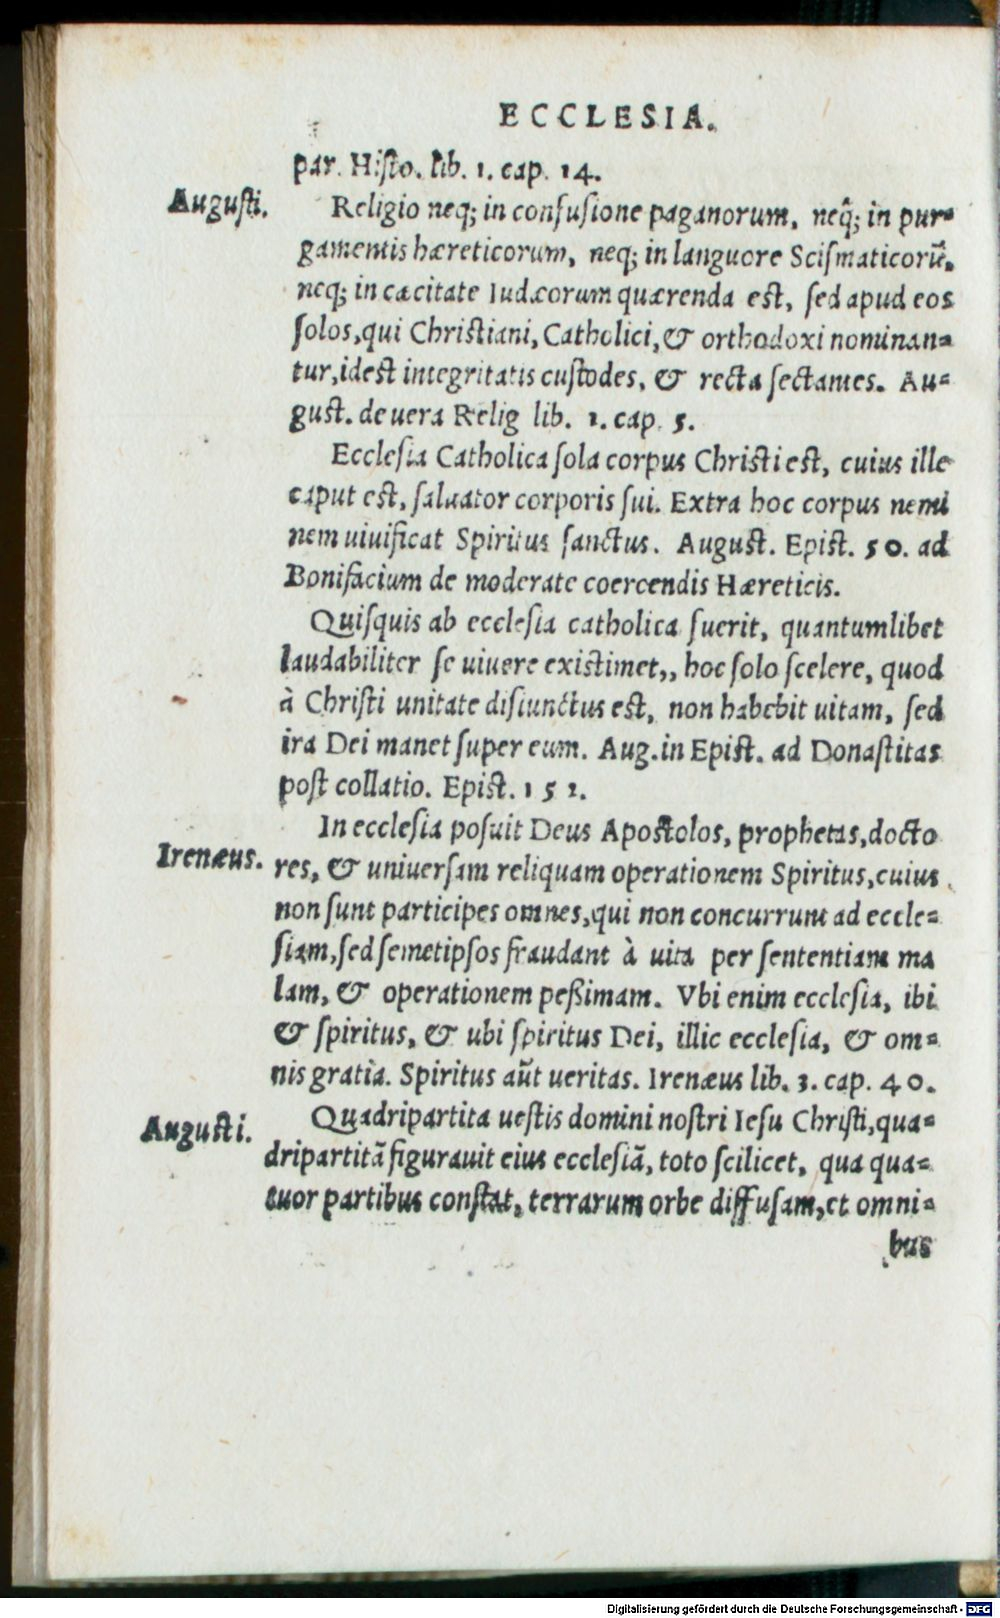 ECCLESIA.
par. Histo. lib. 1. cap. 14.
Augusti.
Religio neq; in confusione paganorum, neq̃; in pur=
gamentis hæreticorum, neq; in languore Scismaticorũ,
neq; in cæcitate Iudæorum quærenda est, sed apud eos
solos, qui Christiani, Catholici, & orthodoxi nominan=
tur, idest integritatis custodes, & recta sectantes. Au=
gust. de uera Relig lib. 1. cap. 5.
Ecclesia Catholica sola corpus Christi est, cuius ille
caput est, saluator corporis sui. Extra hoc corpus nemi
nem uiuificat Spiritus sanctus. August. Epist. 50. ad
Bonifacium de moderate coercendis Hæreticis.
Quisquis ab ecclesia catholica fuerit, quantumlibet
laudabiliter se uiuere existimet,, hoc solo scelere, quod
à Christi unitate disiunctus est, non habebit uitam, sed
ira Dei manet super eum. Aug. in Epist. ad Donastitas
post collatio. Epist. 152.
Irenæus.
In ecclesia posuit Deus Apostolos, prophetas, docto
res, & universam reliquam operationem Spiritus, cuius
non sunt participes omnes, qui non concurrunt ad eccle=
siam, sed semetipsos fraudant à uita per sententiam ma
lam, & operationem peßimam. Vbi enim ecclesia, ibi
& spiritus, & ubi spiritus Dei, illic ecclesia, & om=
nis gratia. Spiritus aũt ueritas. Irenæus lib. 3. cap. 40.
Augusti.
Quadripartita uestis domini nostri Iesu Christi, qua=
dripartitã figurauit eius ecclesiã, toto scilicet, qua qua=
tuor partibus constat, terrarum orbe diffusam, et omni=
bus
Digitalisierung gefördert durch die Deutsche Forschungsgemeinschaft - DFG